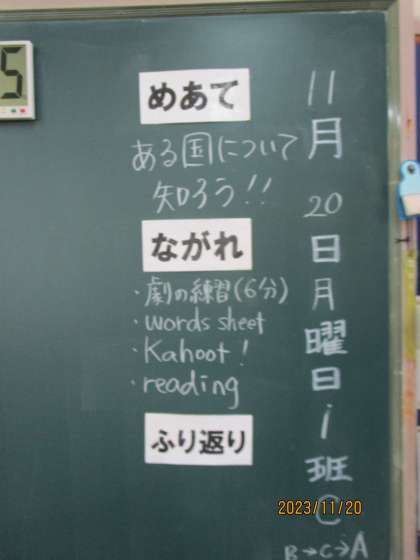 11月20日月曜日1班C
B→C→A
めあて
ある国について
知ろう!!
ながれ
・劇の練習(6分)
・words sheet
・Kahoot!
・reading
ふり返り
5
2023/11/20